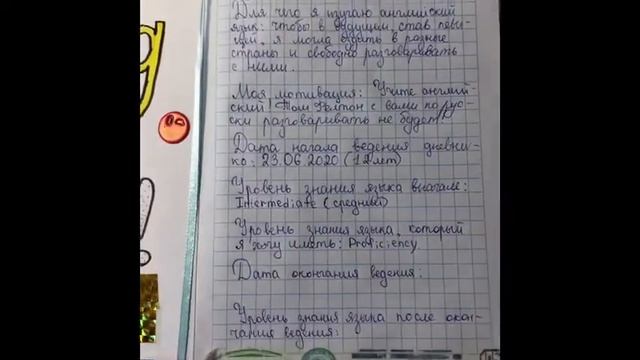 Для чего я изучаю английский
язык: чтобы в будущем, став певи-
цей, я могла ездить в разные
страны и свободно разговаривать
с ними.
Моя мотивация: Учите англий-
ский! Том Фелтон с вами по рус-
ски разговаривать не будет!
Дата начала ведения дневни-
ка: 23.06.2020 (12 лет)
Уровень знания языка вначале:
Intermediate (средний)
Уровень знания языка, который
я хочу иметь: Proficiency
Дата окончания ведения:
Уровень знания языка после окон-
чания ведения: